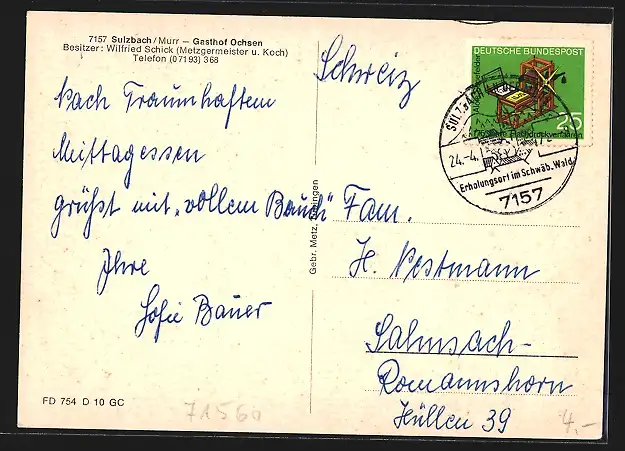 7157 Sulzbach/Murr — Gasthof Ochsen
Besitzer: Wilfried Schick (Metzgermeister u. Koch)
Telefon (07193) 368
Nach Traumhaftem
Mittagessen
grüßt mit „vollem Bauch"
Ihre
Sofie Bauer
FD 754 D 10 GC
71560
Gebr. Metz, Tübingen
Schweiz
Fam.
H. Pestmann
Salmsach-
Romannshorn
Hüllen 39
4,-
DEUTSCHE BUNDESPOST
25
24.-4.
Erholungsort im Schwäb. Wald
7157